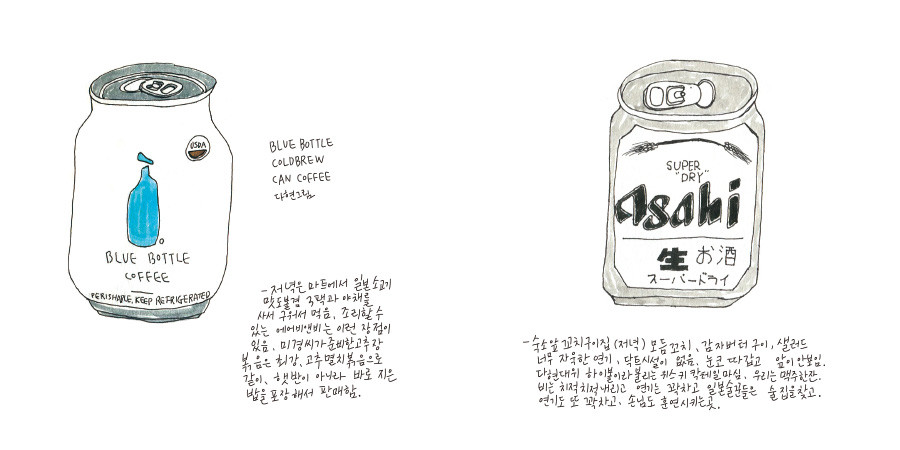 USDA
BLUE BOTTLE
COFFEE
PERISHABLE, KEEP REFRIGERATED
BLUE BOTTLE
COLDBREW
CAN COFFEE
다현그림
-저녁은 마트에서 일본소고기
맛도볼겸 3팩과 야채를
사서 구워서 먹음. 조리할수
있는 에어비앤비는 이런 장점이
있음. 미경씨가준비한고추장
볶음은 최강, 고추멸치볶음으로
같이, 햇반이 아니라 바로 지은
밥을 포장해서 판매함.
SUPER
"DRY"
Asahi
生 お酒
スーパードライ
-숙소앞 꼬치구이집 (저녁) 모듬꼬치, 감자버터구이, 샐러드
너무 자욱한 연기, 닥트시설이 없음, 눈코 따갑고 앞이 안보임.
다현대위 하이볼이라불리는 위스키칵테일마심, 우리는맥주한잔.
비는 치적치적내리고 연기는 꽉차고 일본술꾼들은 술집을찾고.
연기도 또 꽉차고, 손님도 훈연시키는곳.